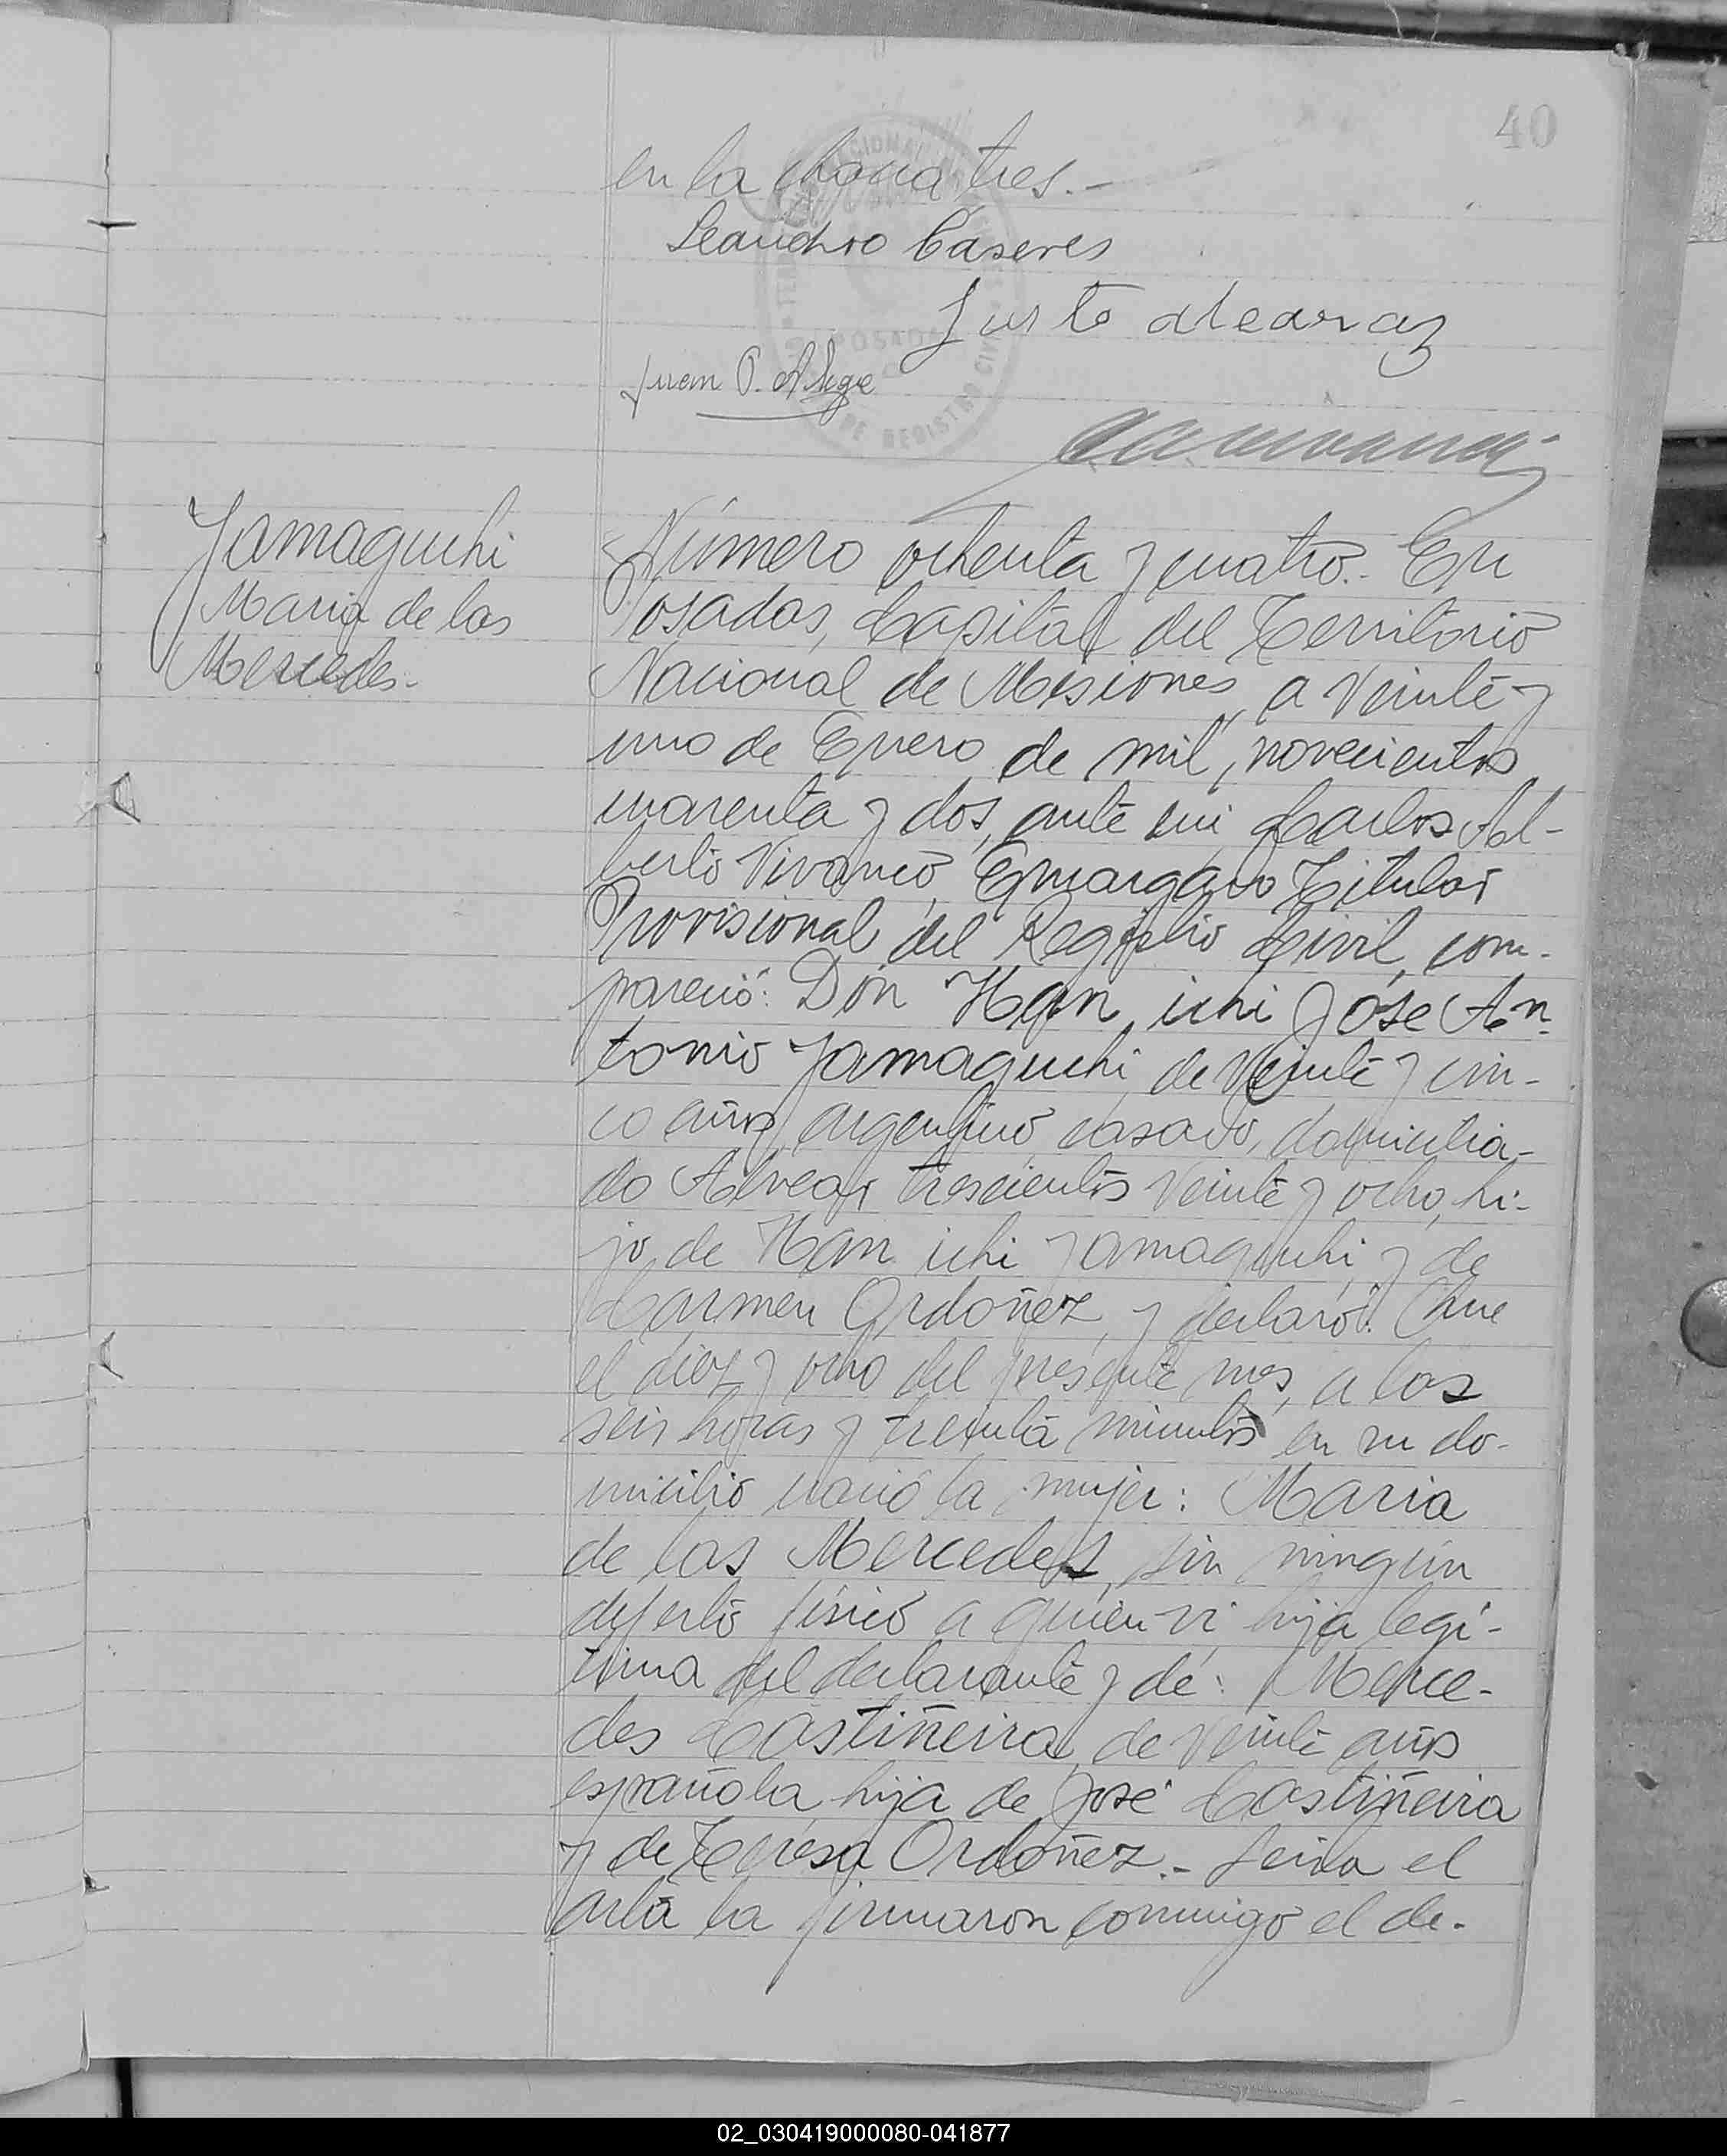 40
en la chacra tres.-
Leandro Caseres
Justo alcaraz
Juan P. Alege
POSADAS
DE REGISTRO CIVIL
Yamaguchi
Maria de las
Mercedes.-
Número ochenta y cuatro.- En
Posadas, Capital del Territorio
Nacional de Misiones, a Veinte y
uno de Enero de mil, novecientos
cuarenta y dos, ante mi Carlos Al-
berto Vivanco, Encargado Titular
Provisional del Registro Civil, com-
pareció: Don Han ichi José An-
tonio Yamaguchi, de Veinte y cin-
co años, argentino, casado, domicilia-
do Alvear trescientos veinte y ocho, hi-
jo de Han ichi Yamaguchi y de
Carmen Ordoñez, y declaró: Que
el diez y ocho del presente mes, a las
seis horas y treinta minutos en su do-
micilio nació la mujer: Maria
de las Mercedes, sin ningún
defecto físico a quien vi, hija legí-
tima del declarante y de: Merce-
des Castiñeira, de veinte años
española hija de José Castiñeira
y de Teresa Ordoñez.- Leida el
acta la firmaron conmigo el de-
02_030419000080-041877